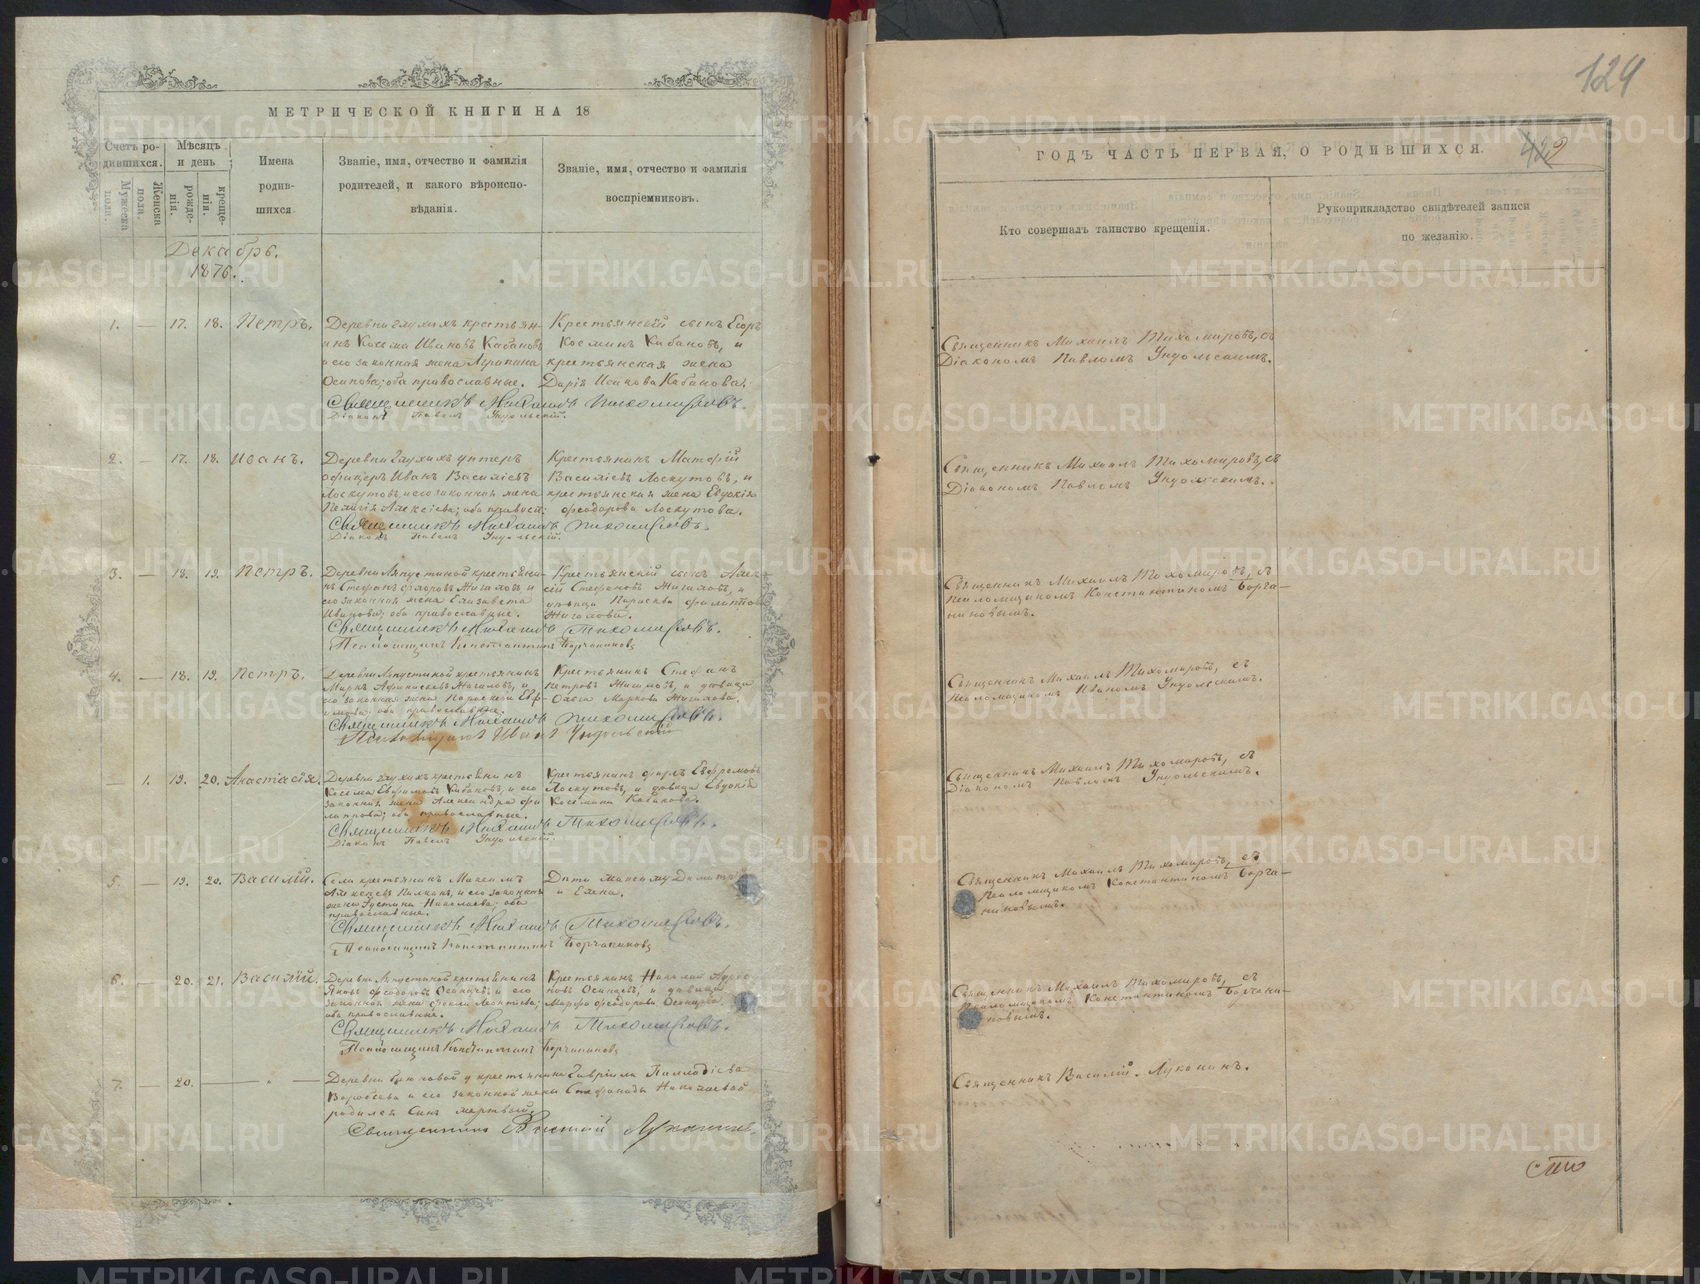 МЕТРИЧЕСКОЙ КНИГИ НА 18
Счетъ родившихся.
Мужеска пола.
Женска пола.
Мѣсяцъ и день
рожденія.
крещенія.
Имена родившихся.
Званіе, имя, отчество и фамилія
родителей, и какого вѣроиспо-
вѣданія.
Званіе, имя, отчество и фамилія
воспріемниковъ.
Декабрь.
1876.
1. — 17. 18. Петръ.
Деревни Глухихъ крестьян-
инъ Косма Ивановъ Кабановъ
и его законная жена Агрипина
Осипова; оба православные.
Крестьянскій сынъ Егоръ
Косминъ Кабановъ, и
крестьянская жена
Дарія Исакова Кабанова.
Священникъ Михаилъ Тихомировъ.
Діаконъ Павелъ Ундольскій.
2. — 17. 18. Иванъ.
Деревни Глухихъ унтеръ
офицеръ Иванъ Василіевъ
Лоскутовъ, и его законная жена
Пелагія Алексіева; оба правосл:
Крестьянинъ Матфій
Василіевъ Лоскутовъ, и
крестьянская жена Евдокія
Феодорова Лоскутова.
Священникъ Михаилъ Тихомировъ.
Діаконъ Павелъ Ундольскій.
3. — 18. 19. Петръ.
Деревни Лапустиной крестьяни-
нъ Стефанъ Жигаловъ и
его законная жена Елизавета
Иванова; оба православные.
Крестьянскій сынъ Алек-
сій Стефановъ Жигаловъ, и
дѣвица Параскева Филиппова
Жигалова.
Священникъ Михаилъ Тихомировъ.
Псаломщикъ Константинъ Борчаниновъ
4. — 18. 19. Петръ.
Деревни Лапустиной крестьянинъ
Маркъ Афанасьевъ Жигаловъ, и
его законная жена Параскева
оба православные.
Крестьянинъ Стефанъ
Петровъ Жигаловъ, и дѣвица
Ольга Маркова Жигалова.
Священникъ Михаилъ Тихомировъ.
Псаломщикъ Иванъ Ундольскій
— 1. 19. 20. Анастасія.
Деревни Глухихъ крестьянинъ
Косма Евфимовъ Кабановъ, и его
законная жена Александра Фи-
липпова; оба православные.
Крестьянинъ Ефремовъ
Лоскутовъ, и дѣвица Евдокія
Космина Кабанова.
Священникъ Михаилъ Тихомировъ.
Діаконъ Павелъ Ундольскій.
5. — 19. 20. Василій.
Села крестьянинъ Максимъ
Алексѣевъ и его законная
жена Устина Николаева; оба
православные.
Дѣти Димитрій
и Елена.
Священникъ Михаилъ Тихомировъ.
Псаломщикъ Константинъ Борчаниновъ
6. — 20. 21. Василій.
Деревни Лапустиной крестьянинъ
Яковъ Феодоровъ Осинцевъ, и его
законная жена Леонтіева;
оба православные.
Крестьянинъ Николай
Осинцевъ, и дѣвица
Марфа Феодорова Осинцева.
Священникъ Михаилъ Тихомировъ.
Псаломщикъ Константинъ Борчаниновъ
7. — 20. — " —
Деревни у крестьянина Гавріила
Воробьева и его законной жены Стефаниды Николаевой
родился сынъ мертвый.
Священникъ Василій Луканинъ.
124
ГОДЪ ЧАСТЬ ПЕРВАЯ, О РОДИВШИХСЯ.
Кто совершалъ таинство крещенія.
Рукоприкладство свидѣтелей записи
по желанію.
Священникъ Михаилъ Тихомировъ, съ
Діакономъ Павломъ Ундольскимъ.
Священникъ Михаилъ Тихомировъ, съ
Діакономъ Павломъ Ундольскимъ.
Священникъ Михаилъ Тихомировъ, съ
Псаломщикомъ Константиномъ Борча-
ниновымъ.
Священникъ Михаилъ Тихомировъ, съ
Псаломщикомъ Иваномъ Ундольскимъ.
Священникъ Михаилъ Тихомировъ, съ
Діакономъ Павломъ Ундольскимъ.
Священникъ Михаилъ Тихомировъ, съ
Псаломщикомъ Константиномъ Борча-
ниновымъ.
Священникъ Михаилъ Тихомировъ, съ
Псаломщикомъ Константиномъ Борчани-
новымъ.
Священникъ Василій Луканинъ.
сто
METRIKI.GASO-URAL.RU